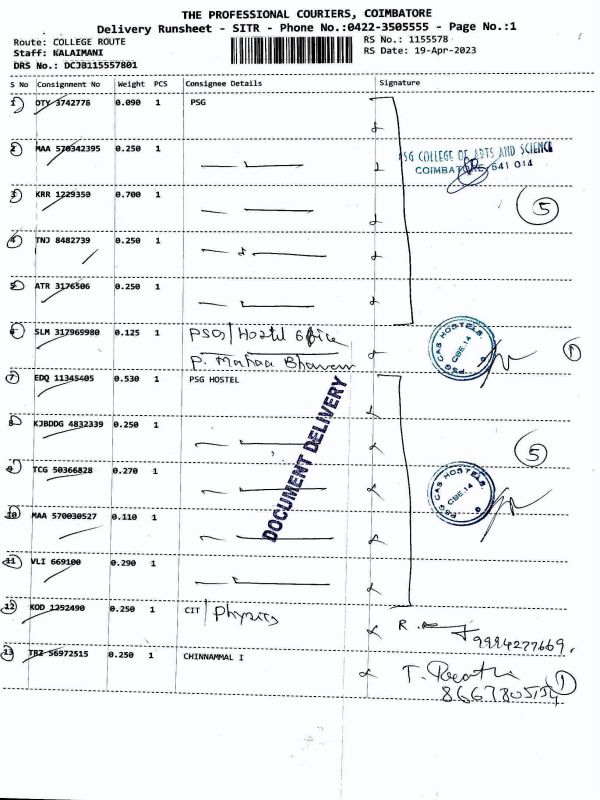 THE PROFESSIONAL COURIERS, COIMBATORE
Delivery Runsheet - SITR - Phone No.:0422-3505555 - Page No.:1
Route: COLLEGE ROUTE
RS No.: 1155578
Staff: KALAIMANI
RS Date: 19-Apr-2023
DRS No.: DCJB115557801
S No Consignment No Weight PCS Consignee Details Signature
1 OTY 3742778 0.090 1 PSG
2 MAA 570342395 0.250 1
PSG COLLEGE OF ARTS AND SCIENCE
COIMBATORE 641 014
3 KRR 1229350 0.700 1
5
4 TNJ 8482739 0.250 1
5 ATR 3176506 0.250 1
6 SLM 317969980 0.125 1 PSG/Hostel Office
PSG CAS HOSTELS CBE.14
1
7 EDQ 11345405 0.530 1 PSG HOSTEL
8 KJBDDG 4832339 0.250 1
DOCUMENT DELIVERY
5
9 TCG 50366828 0.270 1
PSG CAS HOSTELS CBE.14
10 MAA 570030527 0.110 1
11 VLI 669100 0.290 1
12 KOD 1252490 0.250 1 CIT / Physics R.
9994277669.
13 TRZ 56972515 0.250 1 CHINNAMMAL I T.
1